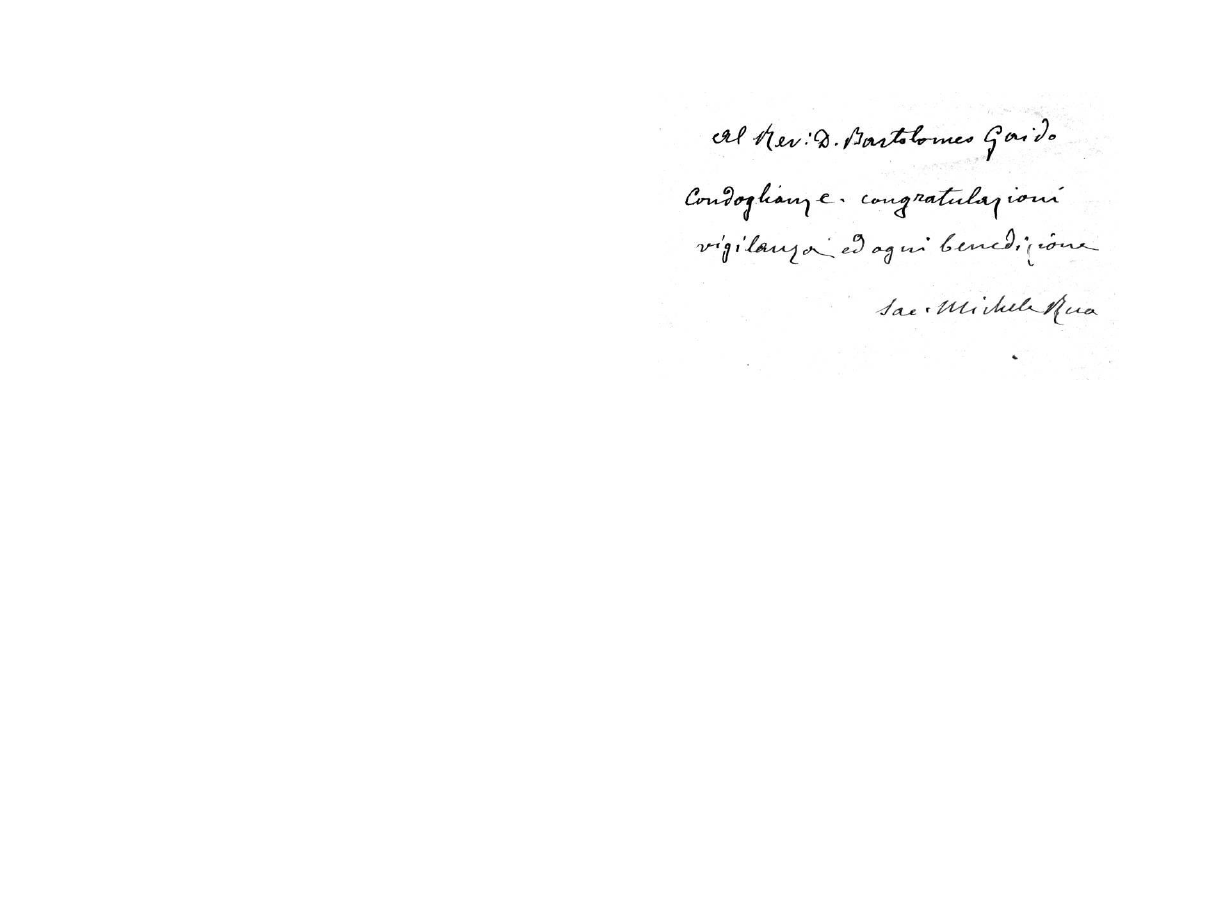 Al Rev: D. Bartolomeo Gaido
Condoglianze. congratulazioni
vigilanza ed ogni benedizione
Sac. Michele Rua